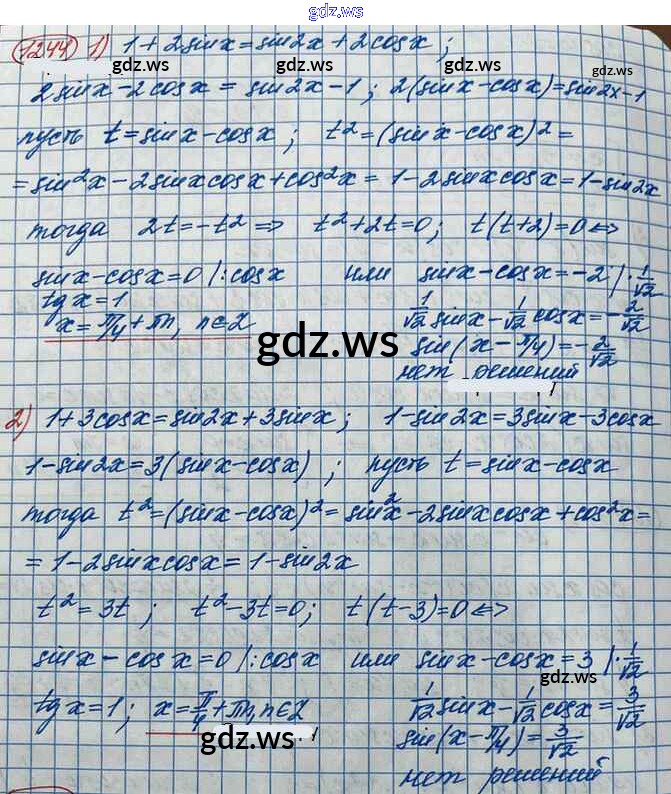 gdz.ws
1244 1) 1+2sinx=sin2x+2cosx;
gdz.ws gdz.ws
2sinx-2cosx=sin2x-1; 2(sinx-cosx)=sin2x-1
пусть t=sinx-cosx; t²=(sinx-cosx)²=
=sin²x-2sinxcosx+cos²x=1-2sinxcosx=1-sin2x
тогда 2t=-t² => t²+2t=0; t(t+2)=0 <=>
sinx-cosx=0 |:cosx или sinx-cosx=-2 |·1/√2
tgx=1 1/√2 sinx-1/√2 cosx=-2/√2
x=π/4+πn, n∈Z sin(x-π/4)=-2/√2
gdz.ws
нет решений
2) 1+3cosx=sin2x+3sinx; 1-sin2x=3sinx-3cosx
1-sin2x=3(sinx-cosx); пусть t=sinx-cosx
тогда t²=(sinx-cosx)²=sin²x-2sinxcosx+cos²x=
=1-2sinxcosx=1-sin2x
t²=3t; t²-3t=0; t(t-3)=0 <=>
sinx-cosx=0 |:cosx или sinx-cosx=3 |·1/√2
gdz.ws
tgx=1; x=π/4+πn, n∈Z 1/√2 sinx-1/√2 cosx=3/√2
sin(x-π/4)=3/√2
gdz.ws
нет решений